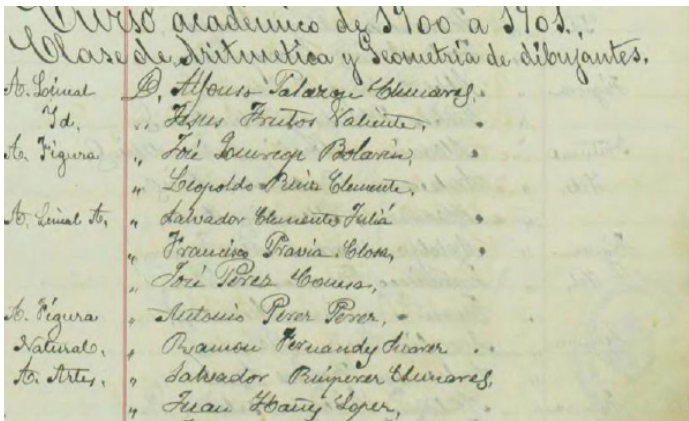 Curso académico de 1900 a 1901.,
Clase de Aritmetica y Geometría de dibujantes.
A. Lineal D. Alfonso Palazon Clemares,
Id. „ Jesus Frutos Valiente,
A. Figura „ José Bolarin,
„ Leopoldo Ruiz Clemente,
A. Lineal A. „ Salvador Clemente Juliá
„ Francisco Pravia Closa,
„ José Perez
A. Figura „ Antonio Perez Perez,
Natural. „ Ramon Fernandez Suarez
A. Artes. „ Salvador Ruiperez Clemares,
„ Juan Ibañez Lopez,